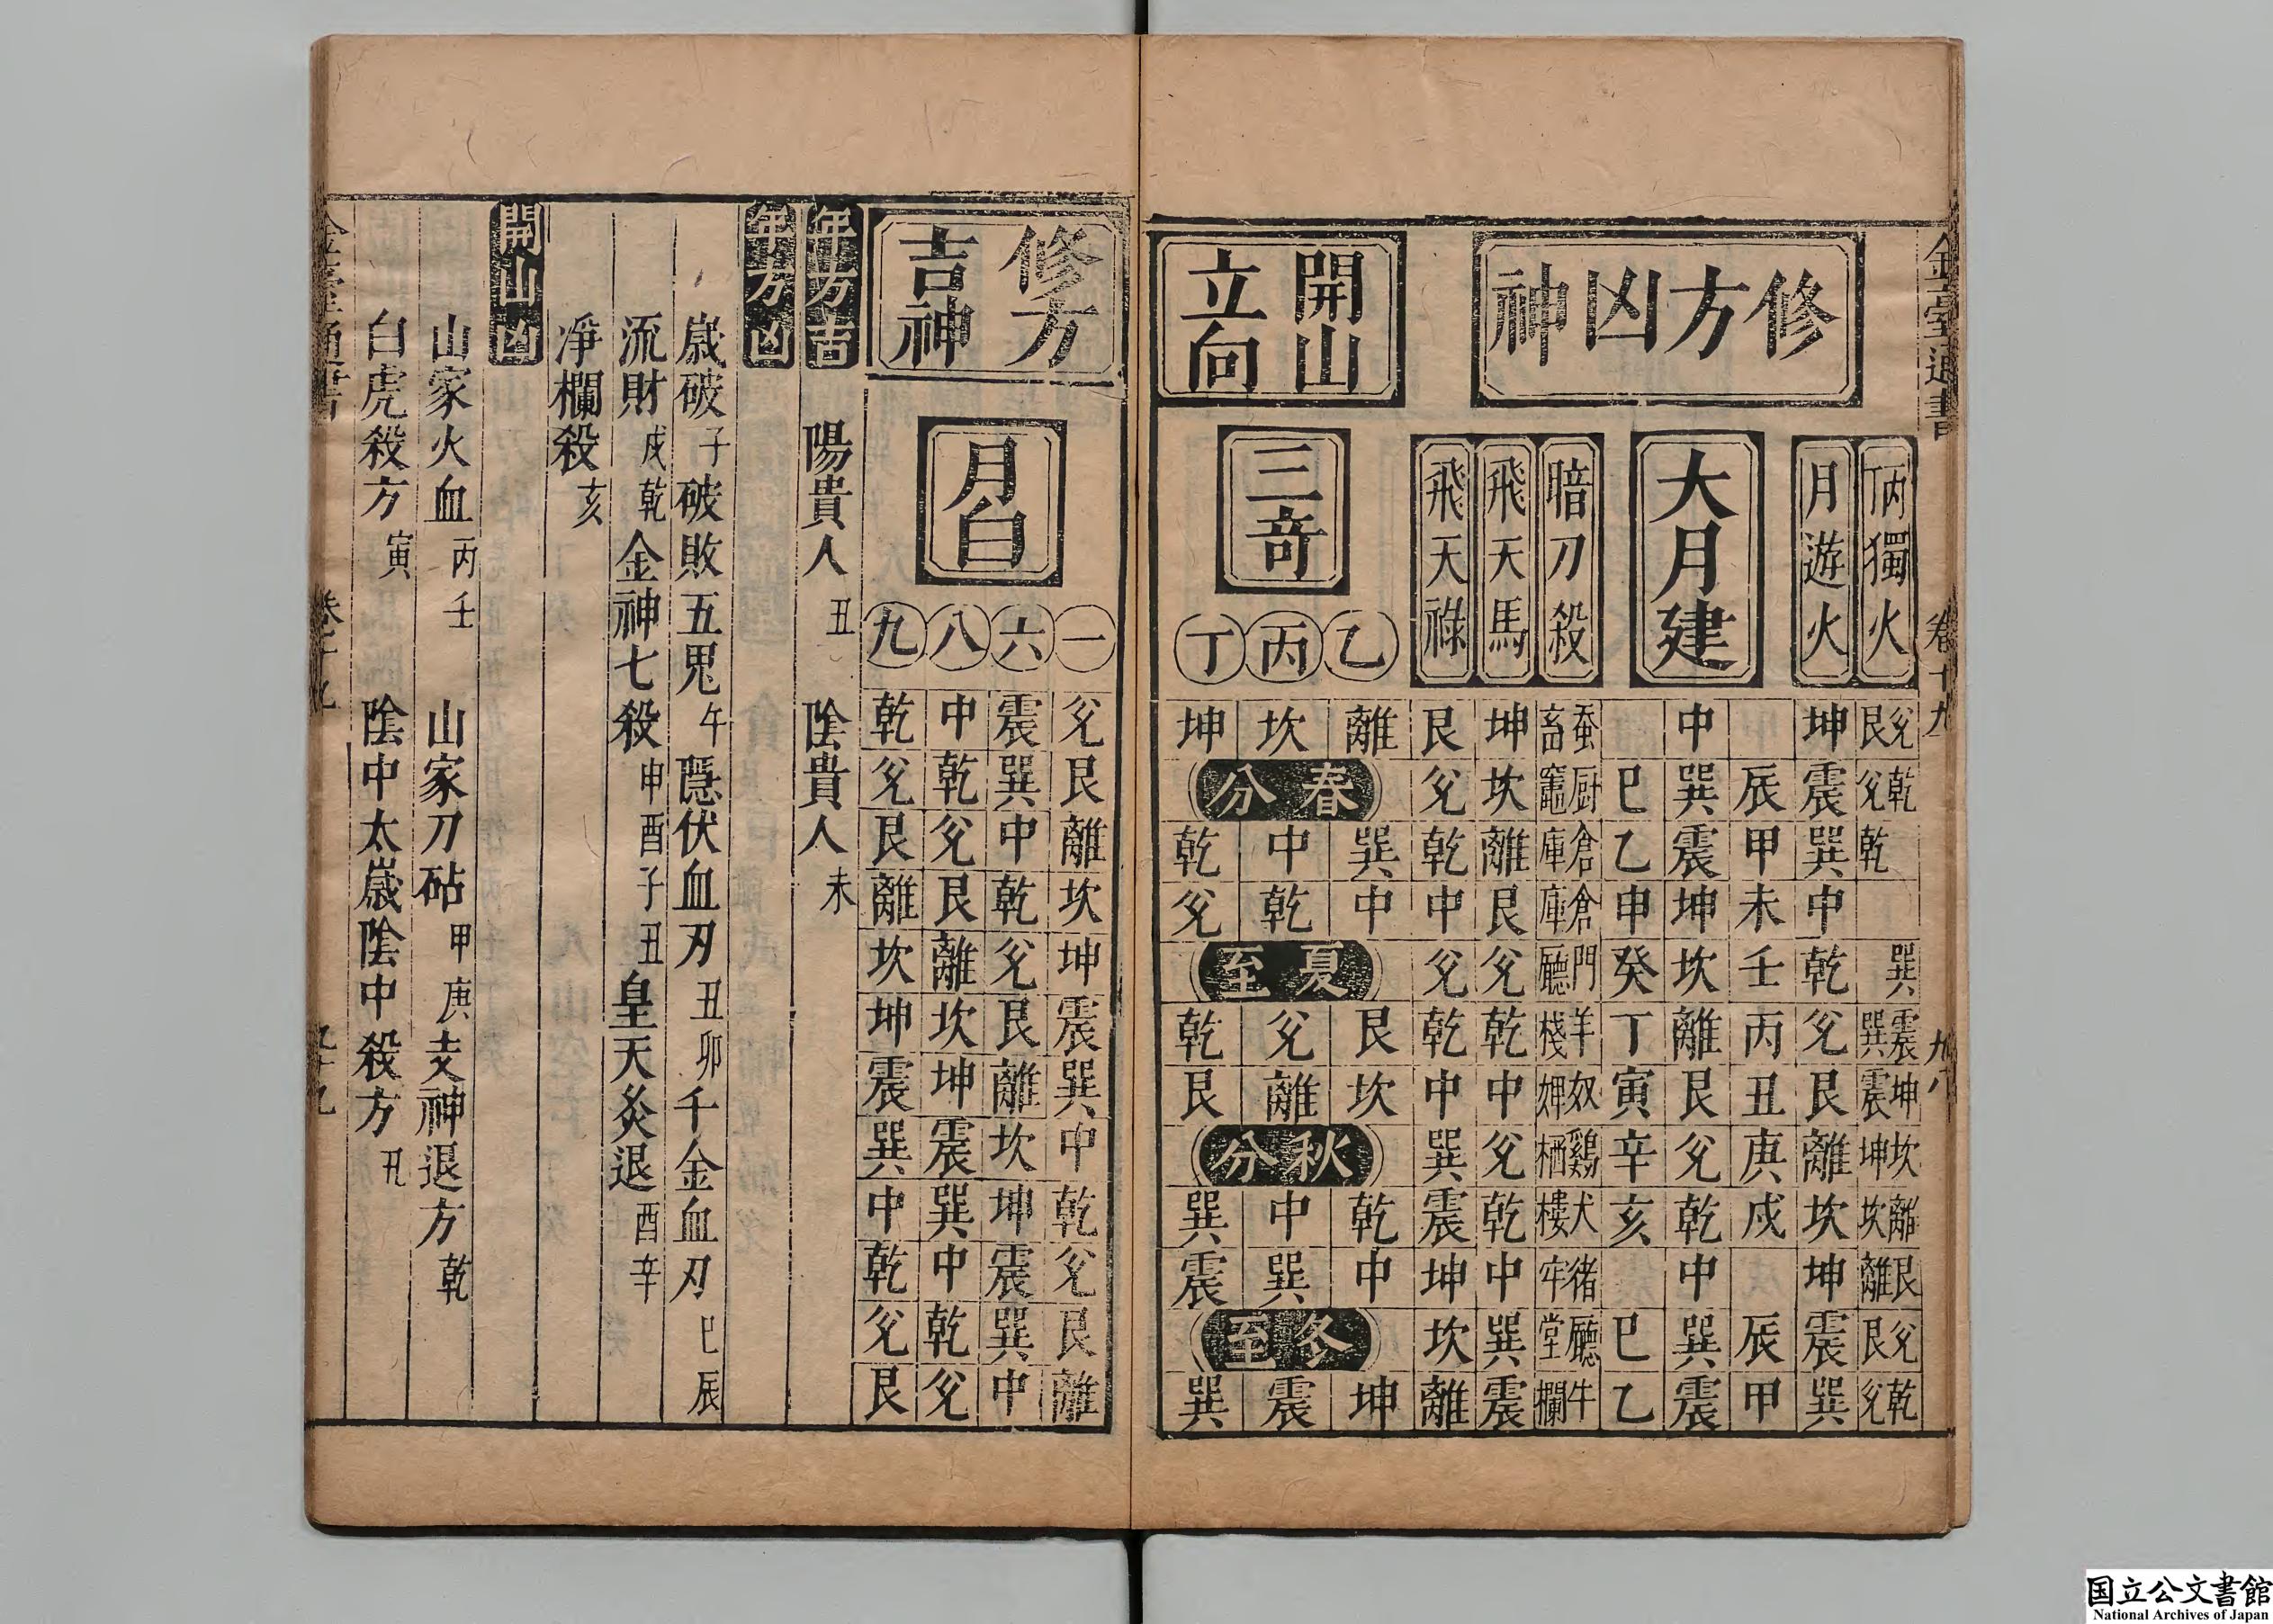 金臺通書 卷十九 九八
修方凶神
丙丁獨火 兊艮 乾兊 乾 巽 震巽 坤震 坎坤 離坎 艮離 兊艮 乾兊
月遊火 坤 震 巽 中 乾 兊 艮 離 坎 坤 震 巽
大月建
辰 甲 未 壬 丙 丑 庚 戌 辰 甲
中 巽 震 坤 坎 離 艮 兊 乾 中 巽 震
巳 乙 申 癸 丁 寅 辛 亥 巳 乙
暗刀殺 蚕畜 厨竈 倉庫 倉庫 門廳 羊棧 奴婢 鷄栖 犬樓 猪牢 廳堂 牛欄
飛天馬 坤 坎 離 艮 兊 乾 中 兊 乾 中 巽 震
飛天祿 艮 兊 乾 中 兊 乾 中 巽 震 坤 坎 離
開山立向
三竒
春分 夏至 秋分 冬至
乙 離 巽 中 艮 坎 乾 中 坤
丙 坎 中 乾 兊 離 中 巽 震
丁 坤 乾 兊 乾 艮 巽 震 巽
修方吉神
月白
一 兊 艮 離 坎 坤 震 巽 中 乾 兊 艮 離
六 震 巽 中 乾 兊 艮 離 坎 坤 震 巽 中
八 中 乾 兊 艮 離 坎 坤 震 巽 中 乾 兊
九 乾 兊 艮 離 坎 坤 震 巽 中 乾 兊 艮
年方吉 陽貴人 丑 陰貴人 未
年方凶
歲破 子 破敗五鬼 午 隱伏血刃 丑 卯 千金血刃 巳 辰
流財 戌 乾 金神七殺 申 酉 子 丑 皇天炙退 酉 辛
淨欄殺 亥
開山凶
山家火血 丙 壬 山家刀砧 甲 庚 支神退方 乾
白虎殺方 寅 陰中太歲陰中殺方 丑
金臺通書 卷十九 九十九
国立公文書館
National Archives of Japan